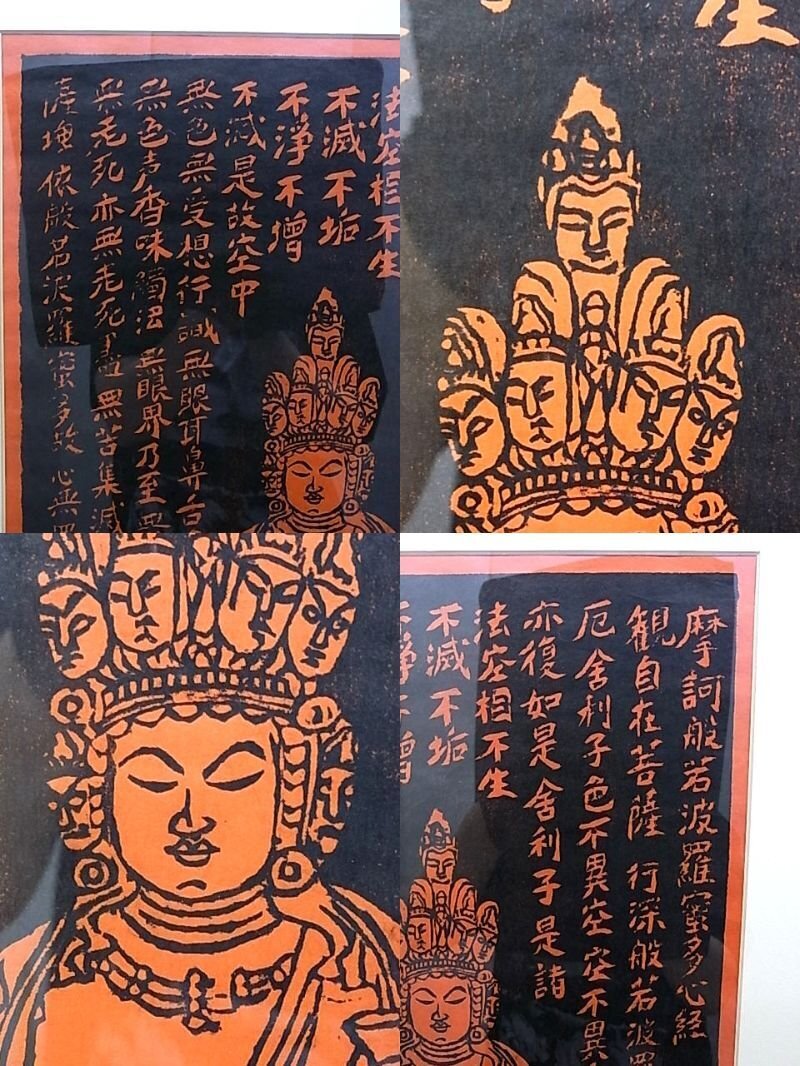 法空相不生
不滅不垢
不淨不増
不減是故空中
無色無受想行識無眼耳鼻舌
無色声香味觸法無眼界乃至無
無老死亦無老死盡無苦集滅
薩埵依般若波羅蜜多故心無罣
生
摩訶般若波羅蜜多心経
觀自在菩薩行深般若波羅
厄舍利子色不異空空不異
亦復如是舍利子是諸
法空相不生
不滅不垢